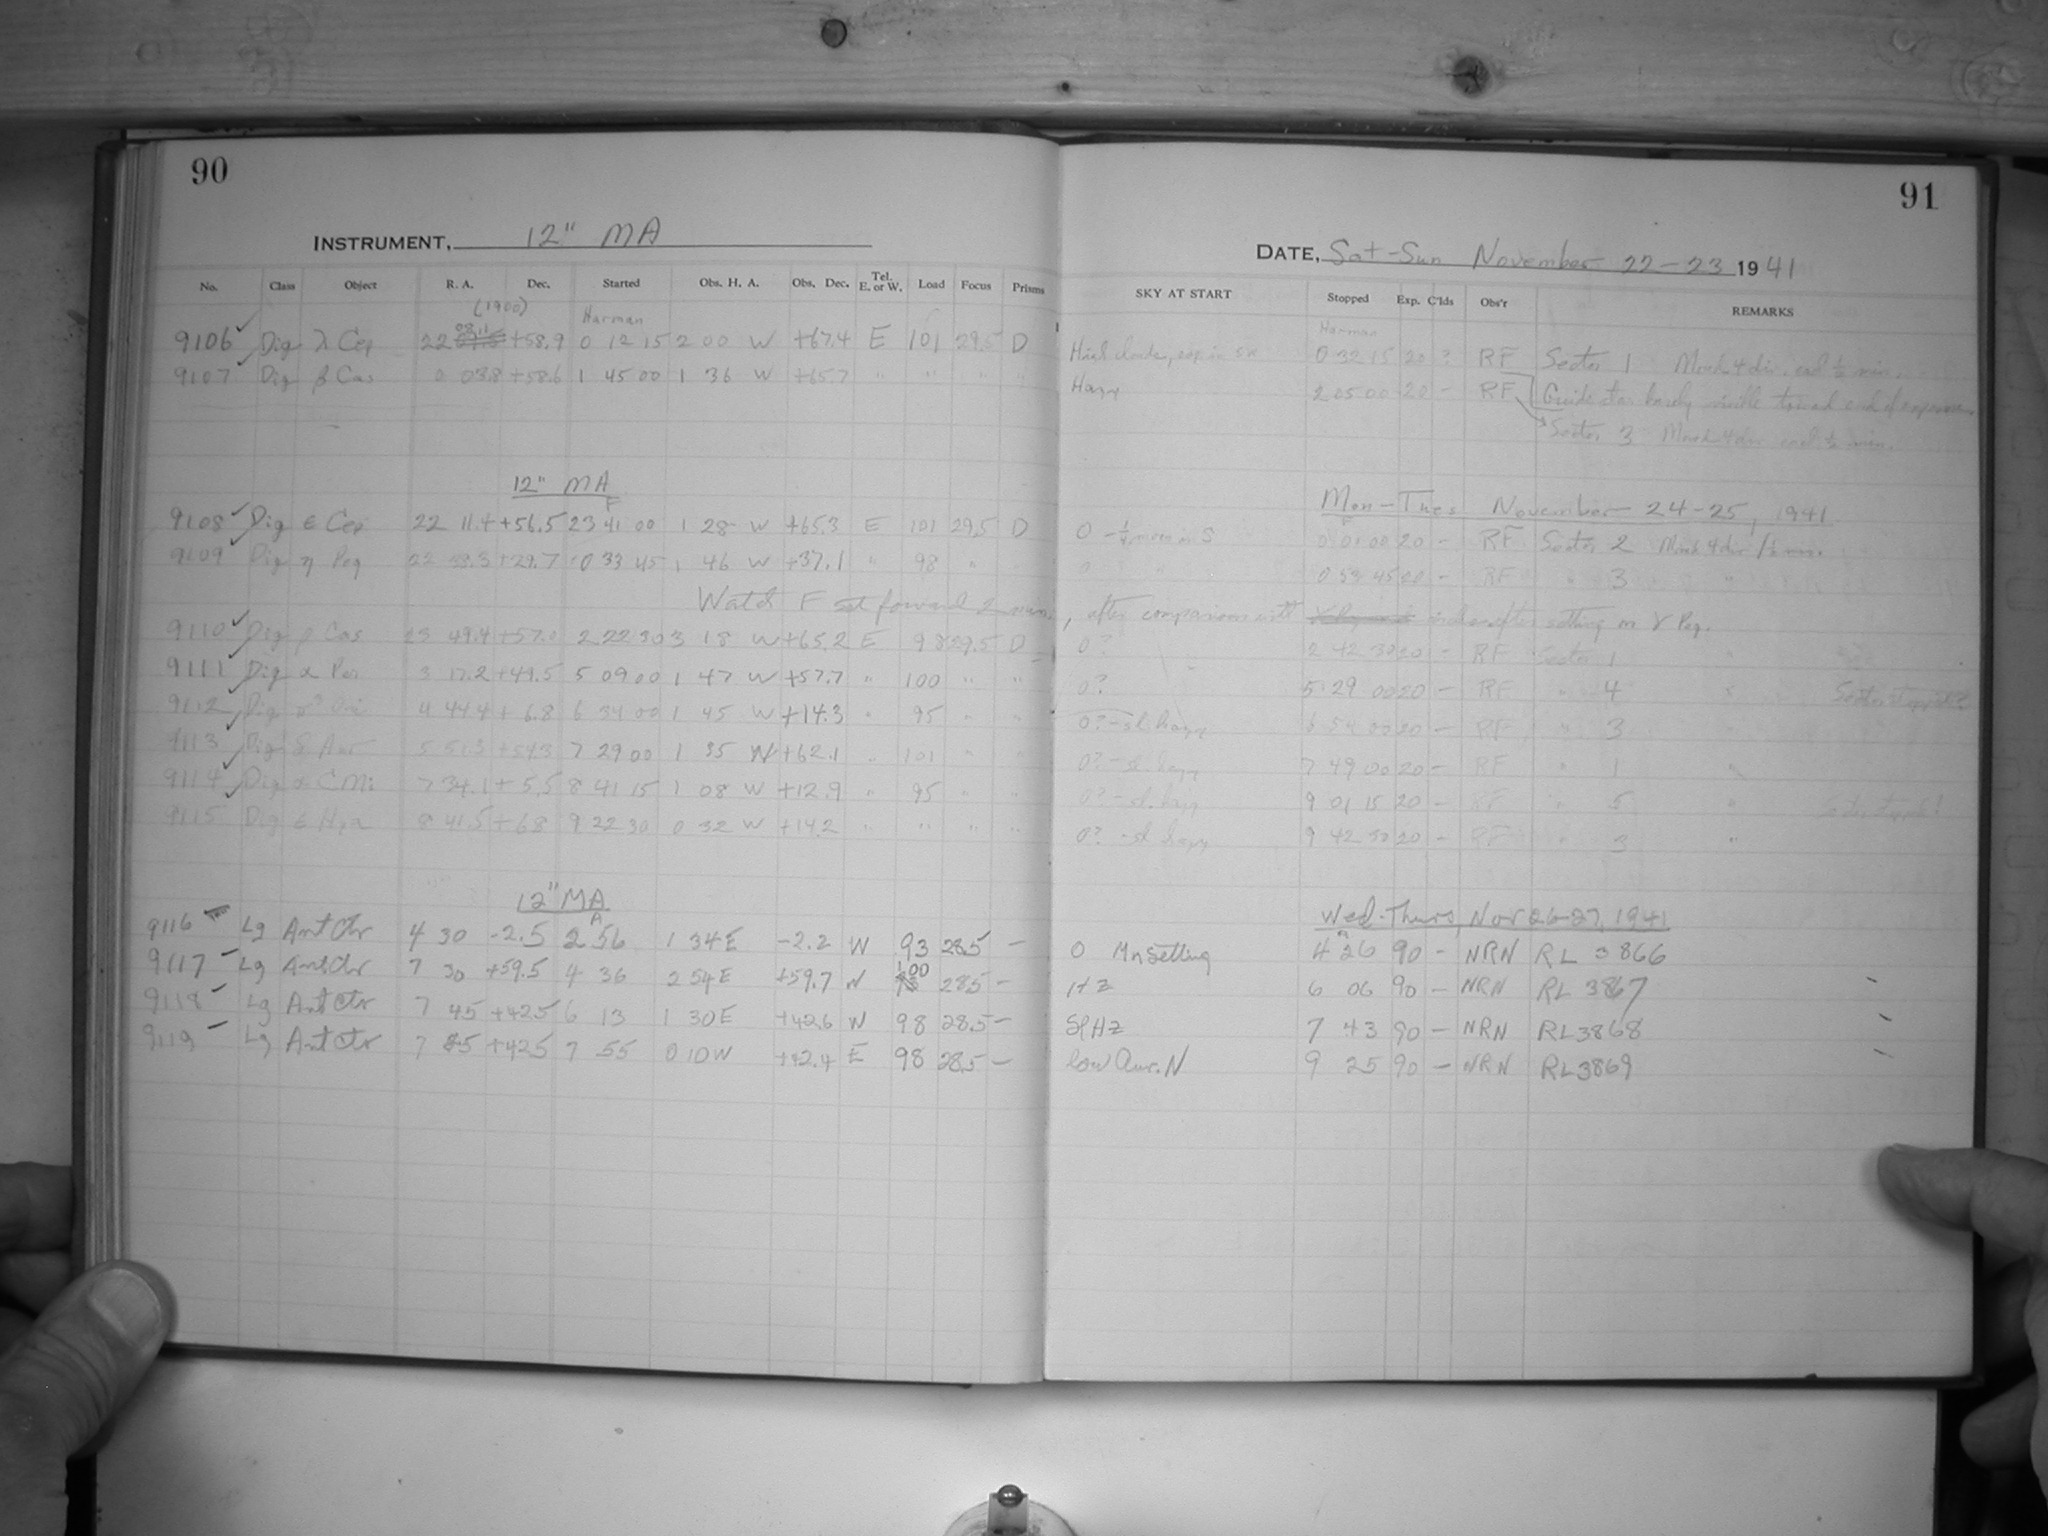 90
INSTRUMENT, 12" MA
No. Class Object R. A. Dec. Started Obs. H. A. Obs. Dec. Tel. E. or W. Load Focus Prisms
(1900) Harman
9106 Dig λ Cep 22 08.11 +58.9 0 12 15 2 00 W +67.4 E 101 29.5 D
9107 Dig β Cas 0 03.8 +58.6 1 45 00 1 36 W +65.7 " " " "
12" MA
F
9108 Dig ε Cep 22 11.4 +56.5 23 41 00 1 28 W +65.3 E 101 29.5 D
9109 Dig η Peg 22 38.3 +29.7 0 33 45 1 46 W +37.1 " 98 "
Watch F set forward 2 min.
9110 Dig ρ Cas 23 49.4 +57.0 2 22 30 3 18 W +65.2 E 98 29.5 D
9111 Dig α Per 3 17.2 +49.5 5 09 00 1 47 W +57.7 " 100 " "
9112 Dig π³ Ori 4 44.4 + 6.8 6 34 00 1 45 W +14.3 " 95 " "
9113 Dig δ Aur 5 51.3 +54.3 7 29 00 1 35 W +62.1 " 101 " "
9114 Dig α CMi 7 34.1 + 5.5 8 41 15 1 08 W +12.9 " 95 " "
9115 Dig ε Hya 8 41.5 +6.8 9 22 30 0 32 W +14.2 " " " "
12" MA
A
9116 Lg Ant Ctr 4 30 -2.5 2 56 1 34 E -2.2 W 93 28.5 —
9117 Lg Ant Ctr 7 30 +59.5 4 36 2 54 E +59.7 W 100 28.5 —
9118 Lg Ant Ctr 7 45 +42.5 6 13 1 30 E +42.6 W 98 28.5 —
9119 Lg Ant Ctr 7 45 +42.5 7 55 0 10 W +42.4 E 98 28.5 —
91
DATE, Sat-Sun November 22-23 1941
SKY AT START Stopped Exp. C'lds Obs'r REMARKS
Harman
High clouds, esp. in SW 0 32 15 20 ? RF Sector 1 March 4 div. each ½ min.
Hazy 2 05 00 20 - RF Guide star barely visible toward end of exposure
Sector 3 March 4 div each ½ min.
Mon-Tues November 24-25, 1941
F
0 - ¼ moon in S 0 01 00 20 - RF Sector 2 March 4 div / ½ min.
0 53 45 20 - RF " 3 "
, after comparison with after setting on γ Peg.
0? 2 42 30 20 - RF Sector 1 "
0? 5 29 00 20 - RF " 4
0? - sl. hazy 6 54 00 20 - RF " 3
0? - sl. hazy 7 49 00 20 - RF " 1 "
0? - sl. hazy 9 01 15 20 - RF " 5 "
0? - sl hazy 9 42 30 20 - RF " 3 "
Wed-Thurs, Nov 26-27, 1941
A
0 Mn Setting 4 26 90 - NRN RL 3866
Hz 6 06 90 - NRN RL 3867
Sl Hz 7 43 90 - NRN RL3868
low Aur. N 9 25 90 - NRN RL3869